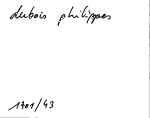 dubois philippes
1901/43